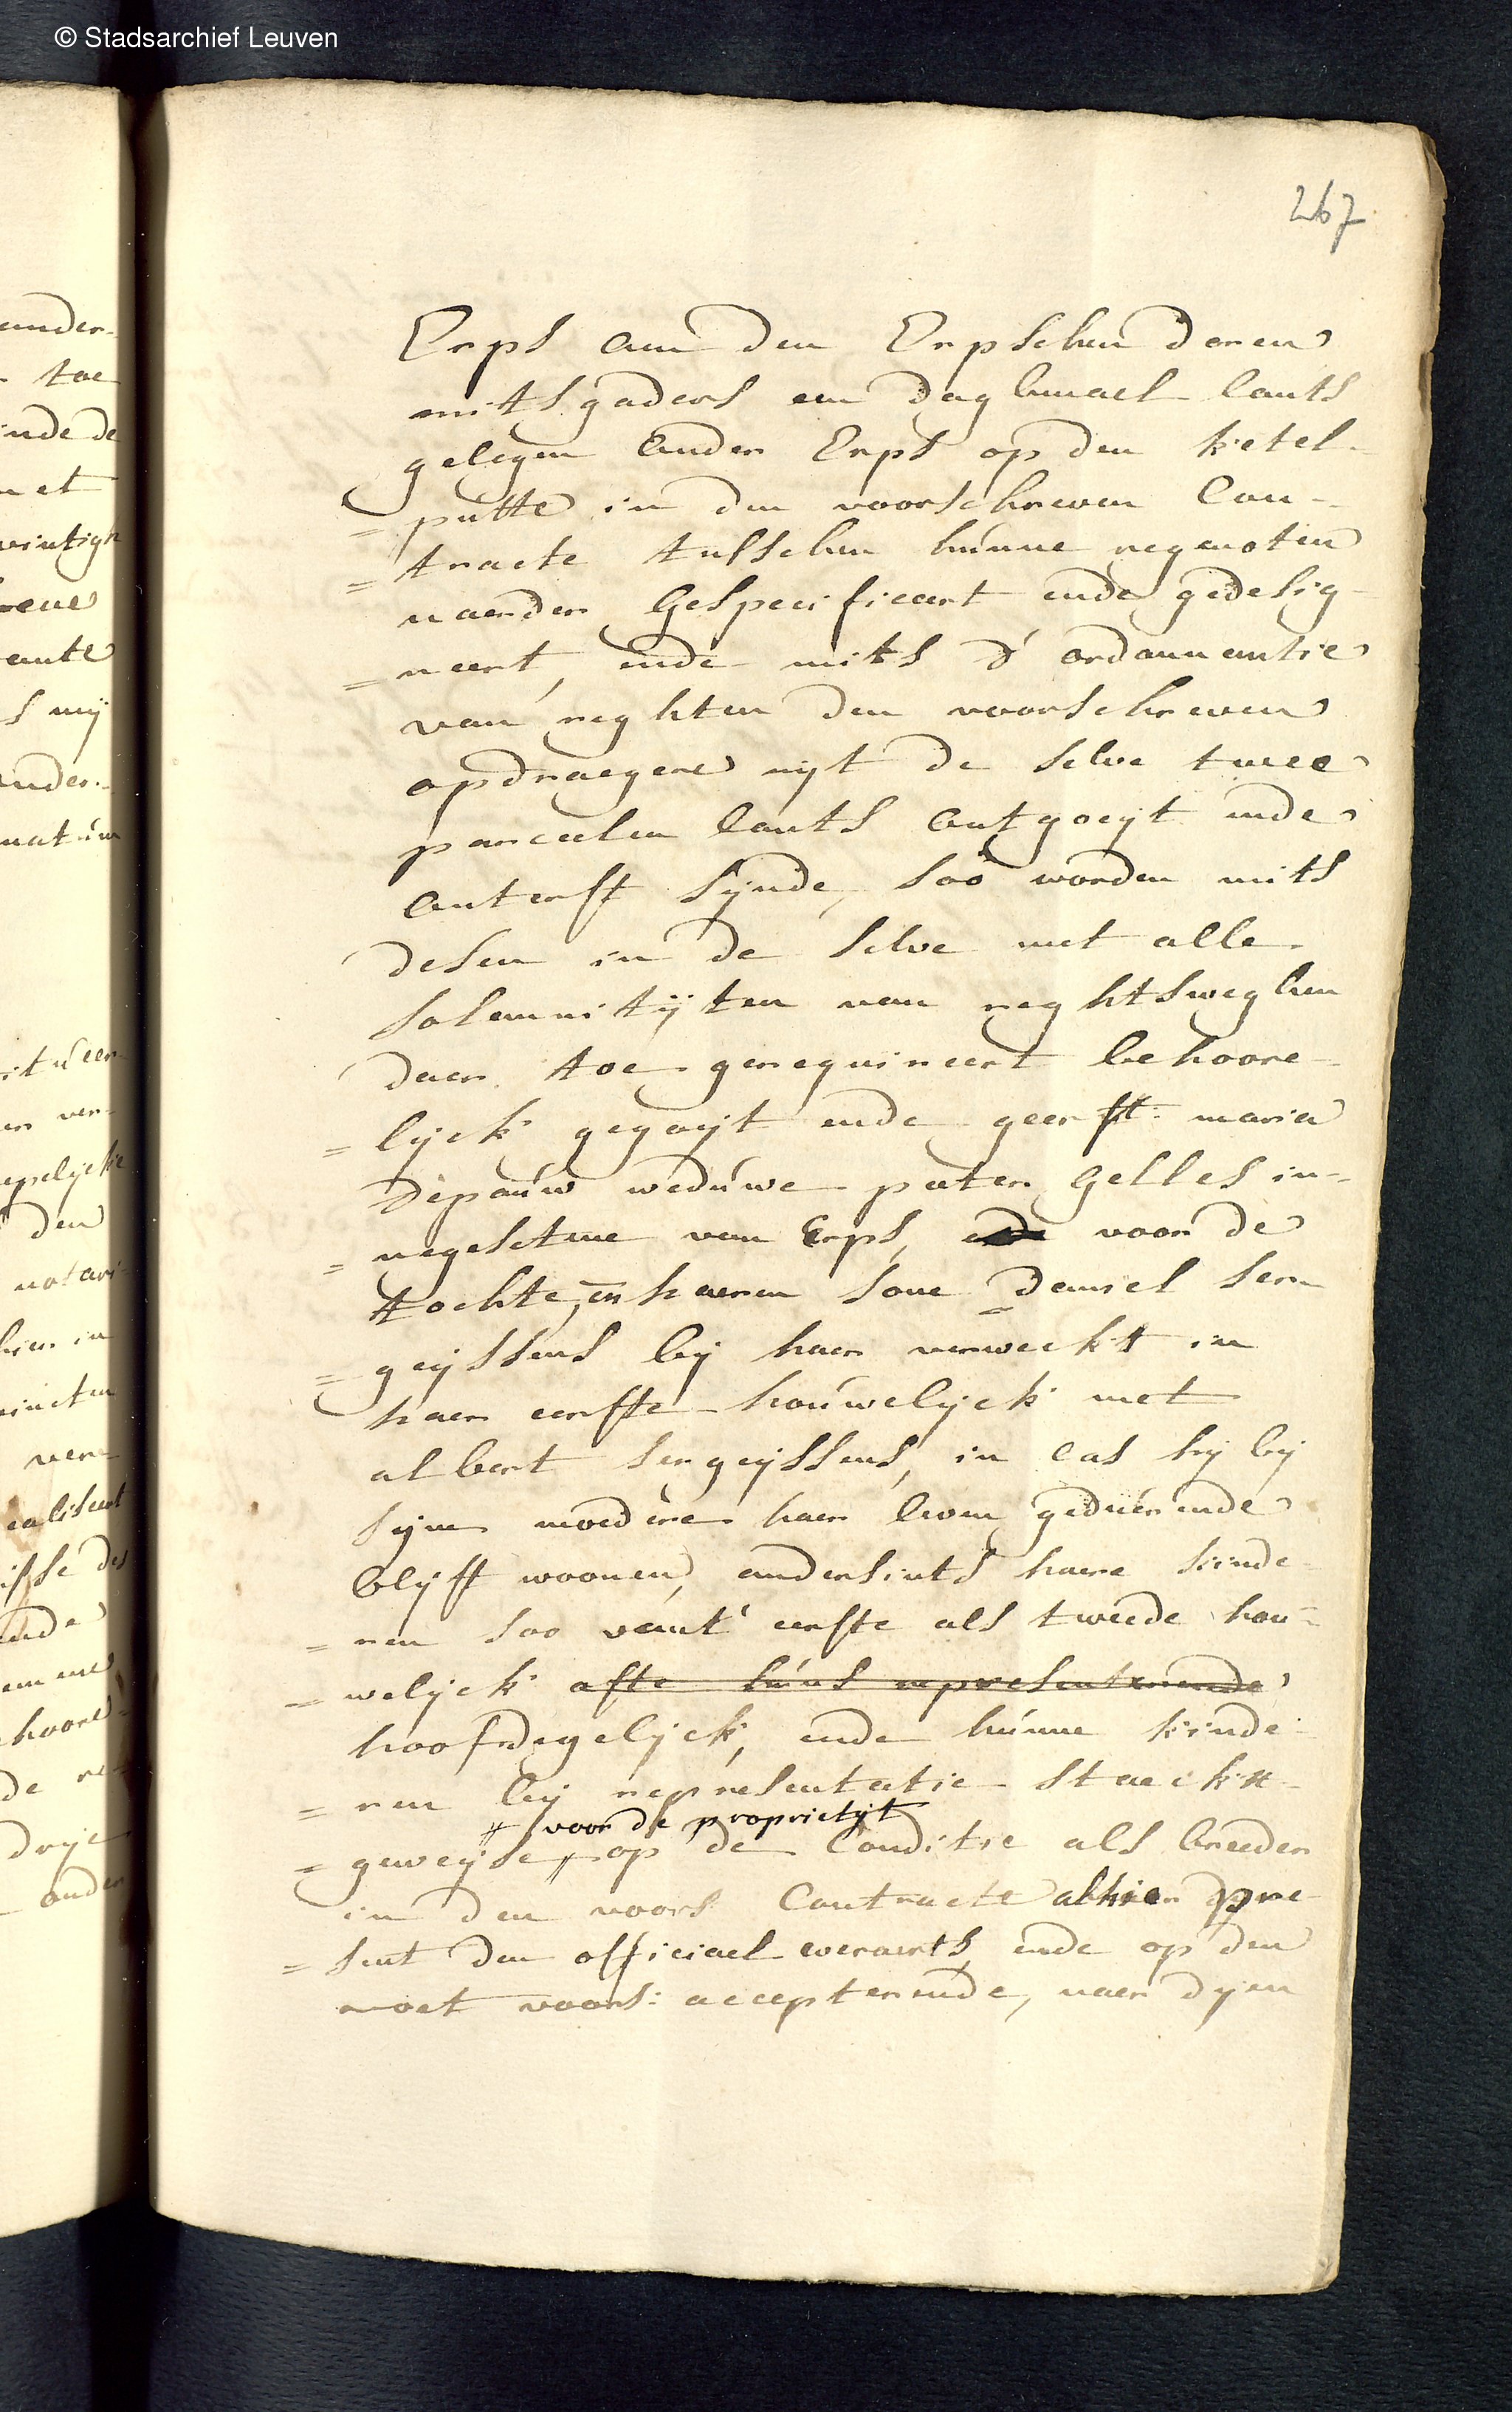 © Stadsarchief Leuven
267
Erps aen den Erpschen doren
mitsgaders een daghmael lants
gelegen onder Erps op den ketel-
= putte in den voorschreven Con-
= tracte tusschen hunne regenoten
naerder gespecificeert ende gedesig-
= neert, ende mits d' ordonnantie
van reghten den voorschreven
opdraegere uyt de selve twee
parceelen lants ontgoeyt ende
onterft sijnde, soo worden mits
desen in de selve met alle
solemnitijten van reghtsweghen
daer toe gerequireert behoore-
= lijck gegoeyt ende geerft maria
Depauw weduwe peter Gelles in-
= negesetene van Erps, voor de
tochte, en haeren sone Daniel ser-
= geyssens bij haer verweckt in
haer eerste houwelyck met
albert sergeyssens, in cas hij bij
sijne moedere haer leven geduerende
blijft woonen, andersints haere kinde-
= ren soo vant eerste als tweede hou-
= welyck ofte hùns representerende
hoofdegelyck, ende hunne kinde-
= ren bij representatie staecks-
# voor de proprietijt
= geweyse # op de Conditie als breeder
in den voors. Contracte alhier pre-
= sent den officiael everaerts, ende op den
voet voors: accepterende, naer dyen